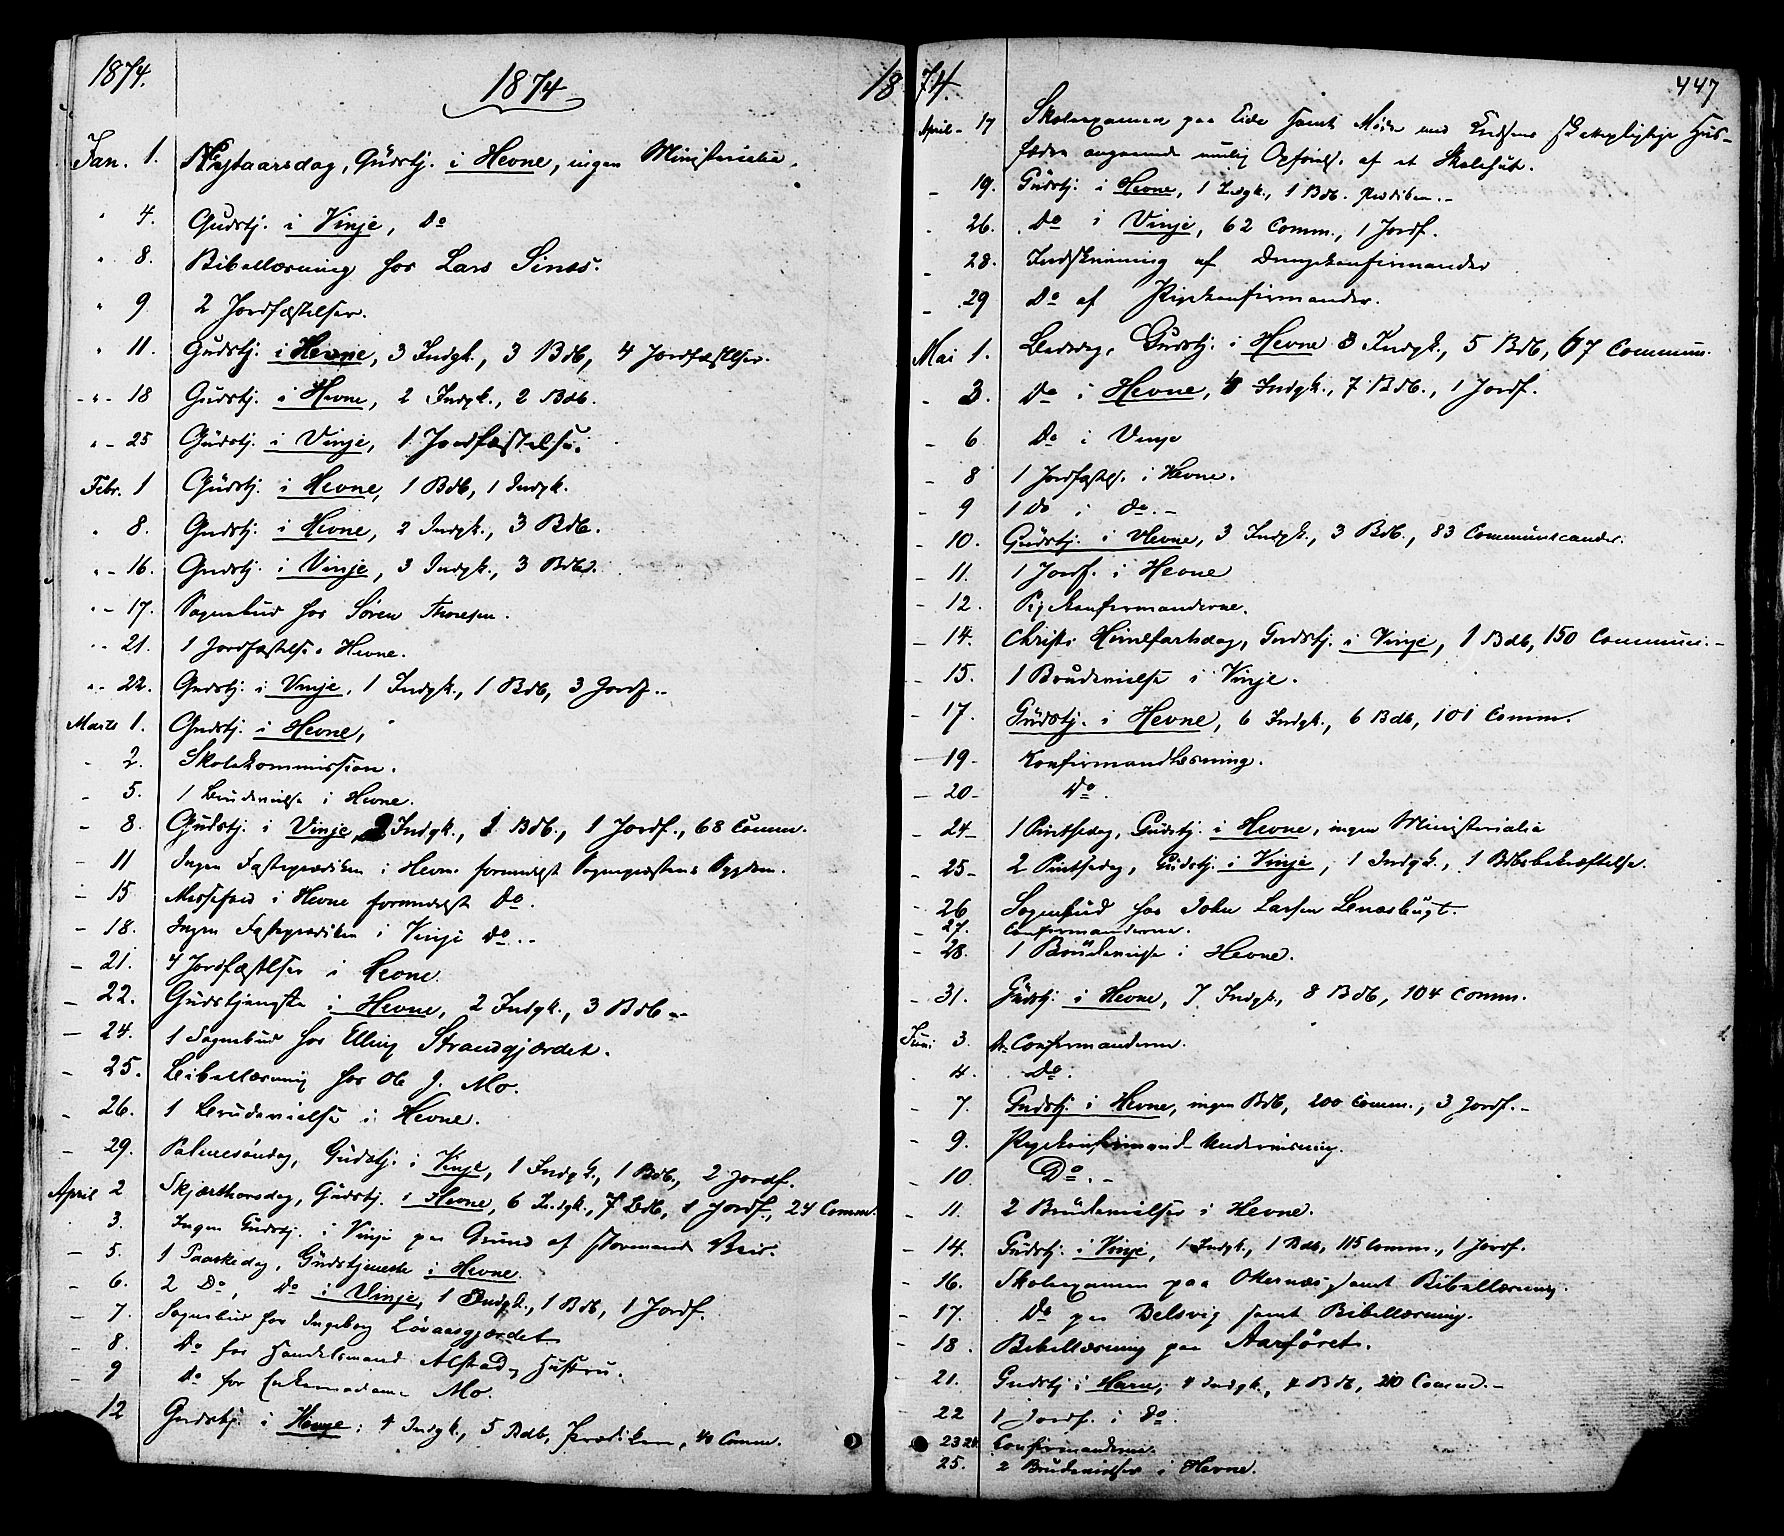 1874.
1874
Jan. 1. Nytaarsdag, Gudstj. i Hevne, ingen Ministerialia.
" 4. Gudstj. i Vinje, Do
" 8. Bibellæsning hos Lars Sinæs.
" 9 2 Jordfæstelser.
" 11. Gudstj. i Hevne, 3 Indgk., 3 Bdb, 4 Jordfæstelser.
- " - 18 Gudstj. i Hevne, 2 Indgk., 2 Bdb.
" - 25 Gudstj. i Vinje, 1 Jordfæstelse.
Febr. 1 Gudstj. i Hevne, 1 Bdb, 1 Indgk.
" 8. Gudstj. i Hevne, 2 Indgk., 3 Bdb.
" - 16. Gudstj. i Vinje, 3 Indgk., 3 Bdb.
" - 17. Sognebud hos Søren Thoresen.
" - 21. 1 Jordfæstelse i Hevne.
" - 22. Gudstj. i Vinje, 1 Indgk., 1 Bdb, 3 Jordf. -
Marts 1. Gudstj. i Hevne,
- 2. Skolekommission.
- 5. 1 Brudevielse i Hevne.
- 8. Gudstj. i Vinje, 2 Indgk., 1 Bdb., 1 Jordf., 68 Comm.
- 11 Ingen Fasteprædiken i Hevne formedelst Sognepræstens Sygdom.
- 15 Messefald i Hevne formedelst Do.
- 18. Ingen Fasteprædiken i Vinje Do. -
- 21. 4 Jordfæstelser i Hevne.
- 22. Gudstjeneste i Hevne, 2 Indgk., 3 Bdb -
- 24. 1 Sognebud hos Elling Strandgjærdet.
- 25. Bibellæsning hos Ole J. Mo.
- 26. 1 Brudevielse i Hevne.
- 29. Palmesøndag, Gudstj. i Vinje, 1 Indgk., 1 Bdb., 2 Jordf.
April 2 Skjærthorsdag, Gudstj. i Hevne, 6 Indgk., 7 Bdb, 1 Jordf., 24 Comm.
3. Ingen Gudstj. i Vinje paa Grund af stormende Veir.
- 5. 1 Paaskedag, Gudstjeneste i Hevne.
- 6. 2 Do, Do i Vinje, 1 Indgk., 1 Bdb, 1 Jordf.
- 7. Sognebud hos Ingeborg Løvaasgjærdet
- 8. Do for Handelsmand Alstads Hustru.
- 9 Do for Enkemadame Mo.
12 Gudstj. i Hevne: 4 Indgk., 5 Bdb, Prædiken, 40 Comm.
1874.
447
April - 17 Skoleexamen paa Eide samt Møde med Kredsens skatepligtige Hus-
fædre angaaende muligt Opførelse af et Skolehus.
- 19. Gudstj. i Hevne, 1 Indgk., 1 Bdb. Prædiken. -
- 26. Do i Vinje, 62 Comm., 1 Jordf.
- 28. Indskrivning af Drengekonfirmander
- 29 Do af Pigekonfirmander.
Mai 1. Bededag, Gudstj. i Hevne 3 Indgk., 5 Bdb, 67 Commun.
- 3. Do i Hevne, Indgk., 7 Bdb., 1 Jordf.
- 6 Do i Vinje
- 8 1 Jordfæstels. i Hevne.
- 9 1 Do i Do. -
- 10. Gudstj. i Hevne, 3 Indgk., 3 Bdb., 83 Communicander.
- 11. 1 Jordf. i Hevne
- 12. Pigekonfirmanderne.
- 14. Christi Himelfartsdag, Gudstj. i Vinje, 1 Bdb, 150 Commun. -
- 15. 1 Brudevielse i Vinje.
- 17. Gudstj. i Hevne, 6 Indgk., 6 Bdb, 101 Comm.
- 19 - Konfirmandlæsning.
- 20 - Do.
- 24 - 1 Pintsedag, Gudstj. i Hevne, ingen Ministerialia
- 25 - 2 Pintsedag, Gudstj. i Vinje, 1 Indgk., 1 Bdbsbekræftelse.
- 26 Sognebud hos John Larsen Lenæsbugt.
- 27. Confirmanderne.
- 28. 1 Brudevielse i Hevne.
- 31. Gudstj. i Hevne, 7 Indgk., 8 Bdb, 104 Comm.
Juni 3. Confirmanderne.
- 4. Do.
- 7. Gudstj. i Hevne, ingen Bdb, 200 Comm., 3 Jordf. -
- 9. Pigekonfirmand-Underviisning.
- 10. Do. -
- 11. 2 Brudevielser i Hevne.
- 14. Gudstj. i Vinje, 1 Indgk., 1 Bdb, 115 Comm., 1 Jordf.
- 16. Skoleexamen paa Okernæs samt Bibellæsning.
- 17. Do paa Belsvig samt Bibellæsning.
- 18. Bibellæsning paa Aarføret.
- 21. Gudstj i Hevne, 4 Indgk., 4 Bdb, 210 Comm. -
- 22 1 Jordf. i Do.
- 23 24. Confirmanderne.
25. 2 Brudevielser i Hevne.